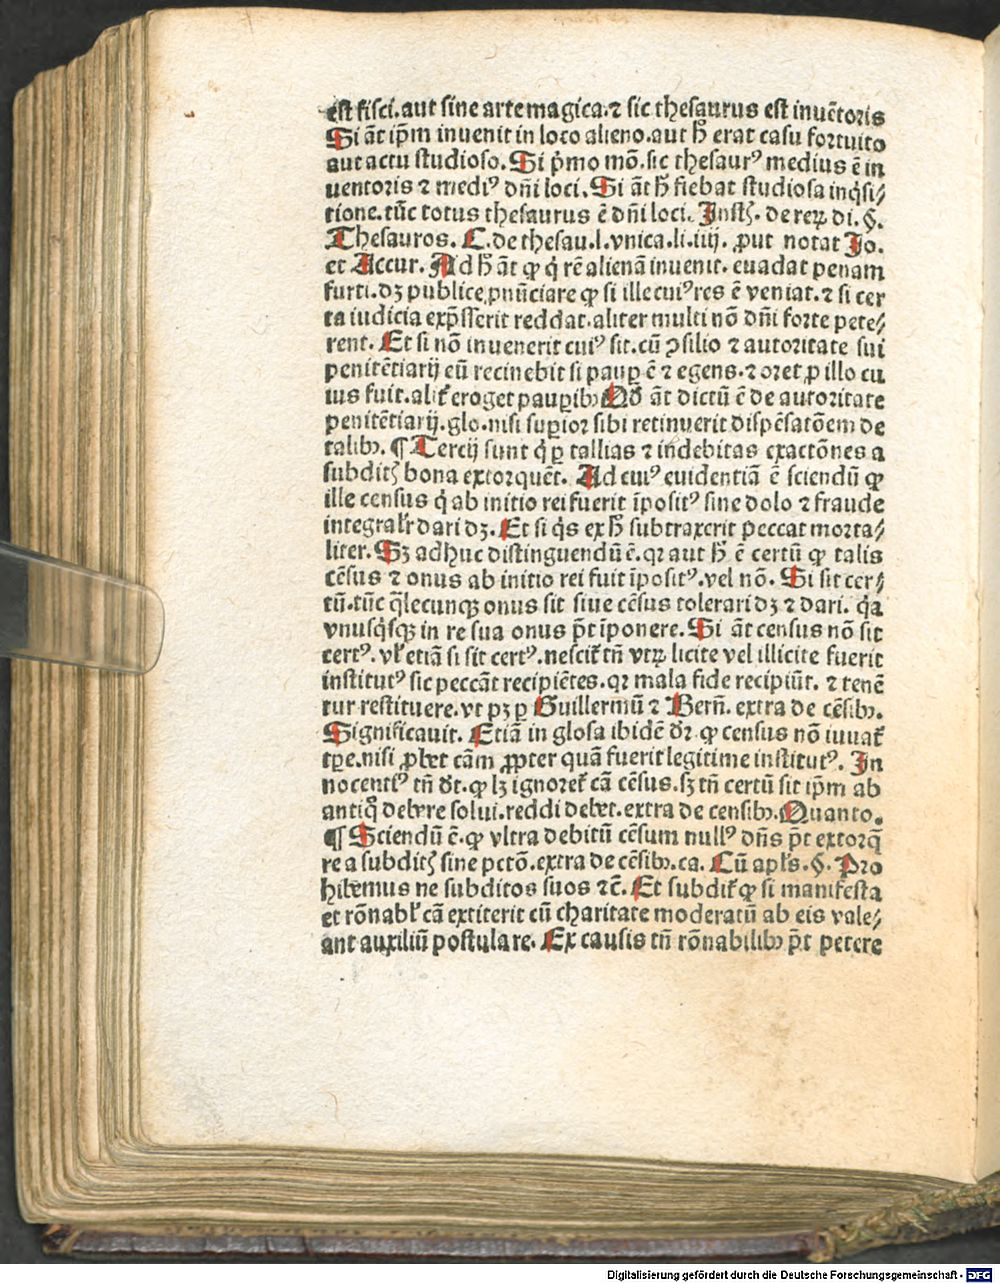 est fisci.aut sine arte magica.⁊ sic thesaurus est inuētoris
Si āt ip̄m inuenit in loco alieno.aut h̄ erat casu fortuito
aut actu studioso. Si p̍mo mō.sic thesaurꝰ medius ē in
uentoris ⁊ mediꝰ dn̄i loci. Si āt h̄ fiebat studiosa inq̍si⸗
tione.tūc totus thesaurus ē dn̄i loci. Instꝭ. de reꝝ di. §.
Thesauros. C.de thesau.l.vnica.li.iiij. ꝓut notat Jo.
et Accur. Ad h̄ āt ꝙ q̍ rē alienā inuenit. euadat penam
furti.dꝫ publice ꝓnūciare ꝙ si ille cuiꝰ res ē veniat.⁊ si cer
ta iudicia exp̄sserit reddat.aliter multi nō dn̄i forte pete⸗
rent. Et si nō inuenerit cuiꝰ sit.cū ꝯsilio ⁊ autoritate sui
penitētiarij eū recinebit si pauꝑ ē ⁊ egens.⁊ oret ꝓ illo cu
ius fuit.alit̃ eroget pauꝑibꝫ Qd̄ āt dictū ē de autoritate
penitētiarij.glo.nisi suꝑior sibi retinuerit dispēsatōem de
talibꝫ. ¶ Tercij sunt q̍ ꝑ tallias ⁊ indebitas exactōnes a
subditꝭ bona extorquēt. Ad cuiꝰ euidentiā ē sciendū ꝙ
ille census q̍ ab initio rei fuerit īpositꝰ sine dolo ⁊ fraude
integral̃r dari dꝫ. Et si q̍s ex h̄ subtraxerit peccat morta⸗
liter. Sꝫ adhuc distinguendū ē.qꝛ aut h̄ ē certū ꝙ talis
cēsus ⁊ onus ab initio rei fuit īpositꝰ.vel nō. Si sit cer⸗
tū.tūc q̄lecunqꝫ onus sit siue cēsus tolerari dꝫ ⁊ dari. q̍a
vnusq̍sqꝫ in re sua onus p̄t īponere. Si āt census nō sit
certꝰ. vl̃ etiā si sit certꝰ.nescit̃ tn̄ vtꝝ licite vel illicite fuerit
institutꝰ sic peccāt recipiētes.qꝛ mala fide recipiūt. ⁊ tenē
tur restituere.vt pꝫ ꝑ Guillermū ⁊ Bern̄. extra de cēsibꝫ.
Significauit. Etiā in glosa ibidē dr̄ ꝙ census nō iuuat̃
tꝑe.nisi ꝓbet cām ꝓpter quā fuerit legitime institutꝰ. In
nocentꝰ tn̄ dt̄.ꝙ lꝫ ignoret̃ cā cēsus.sꝫ tn̄ certū sit ip̄m ab
antiq̊ debere solui.reddi debet.extra de censibꝫ.Quanto.
¶ Sciendū ē.ꝙ vltra debitū cēsum nullꝰ dn̄s p̄t extorq̄
re a subditꝭ sine pctō.extra de cēsibꝫ.ca. Cū apl̃s.§. Pro
hibemus ne subditos suos ⁊c̄. Et subdit̃ ꝙ si manifesta
et rōnabl̃ cā extiterit cū charitate moderatū ab eis vale⸗
ant auxiliū postulare. Ex causis tn̄ rōnabilibꝫ p̄t petere
Digitalisierung gefördert durch die Deutsche Forschungsgemeinschaft - DFG